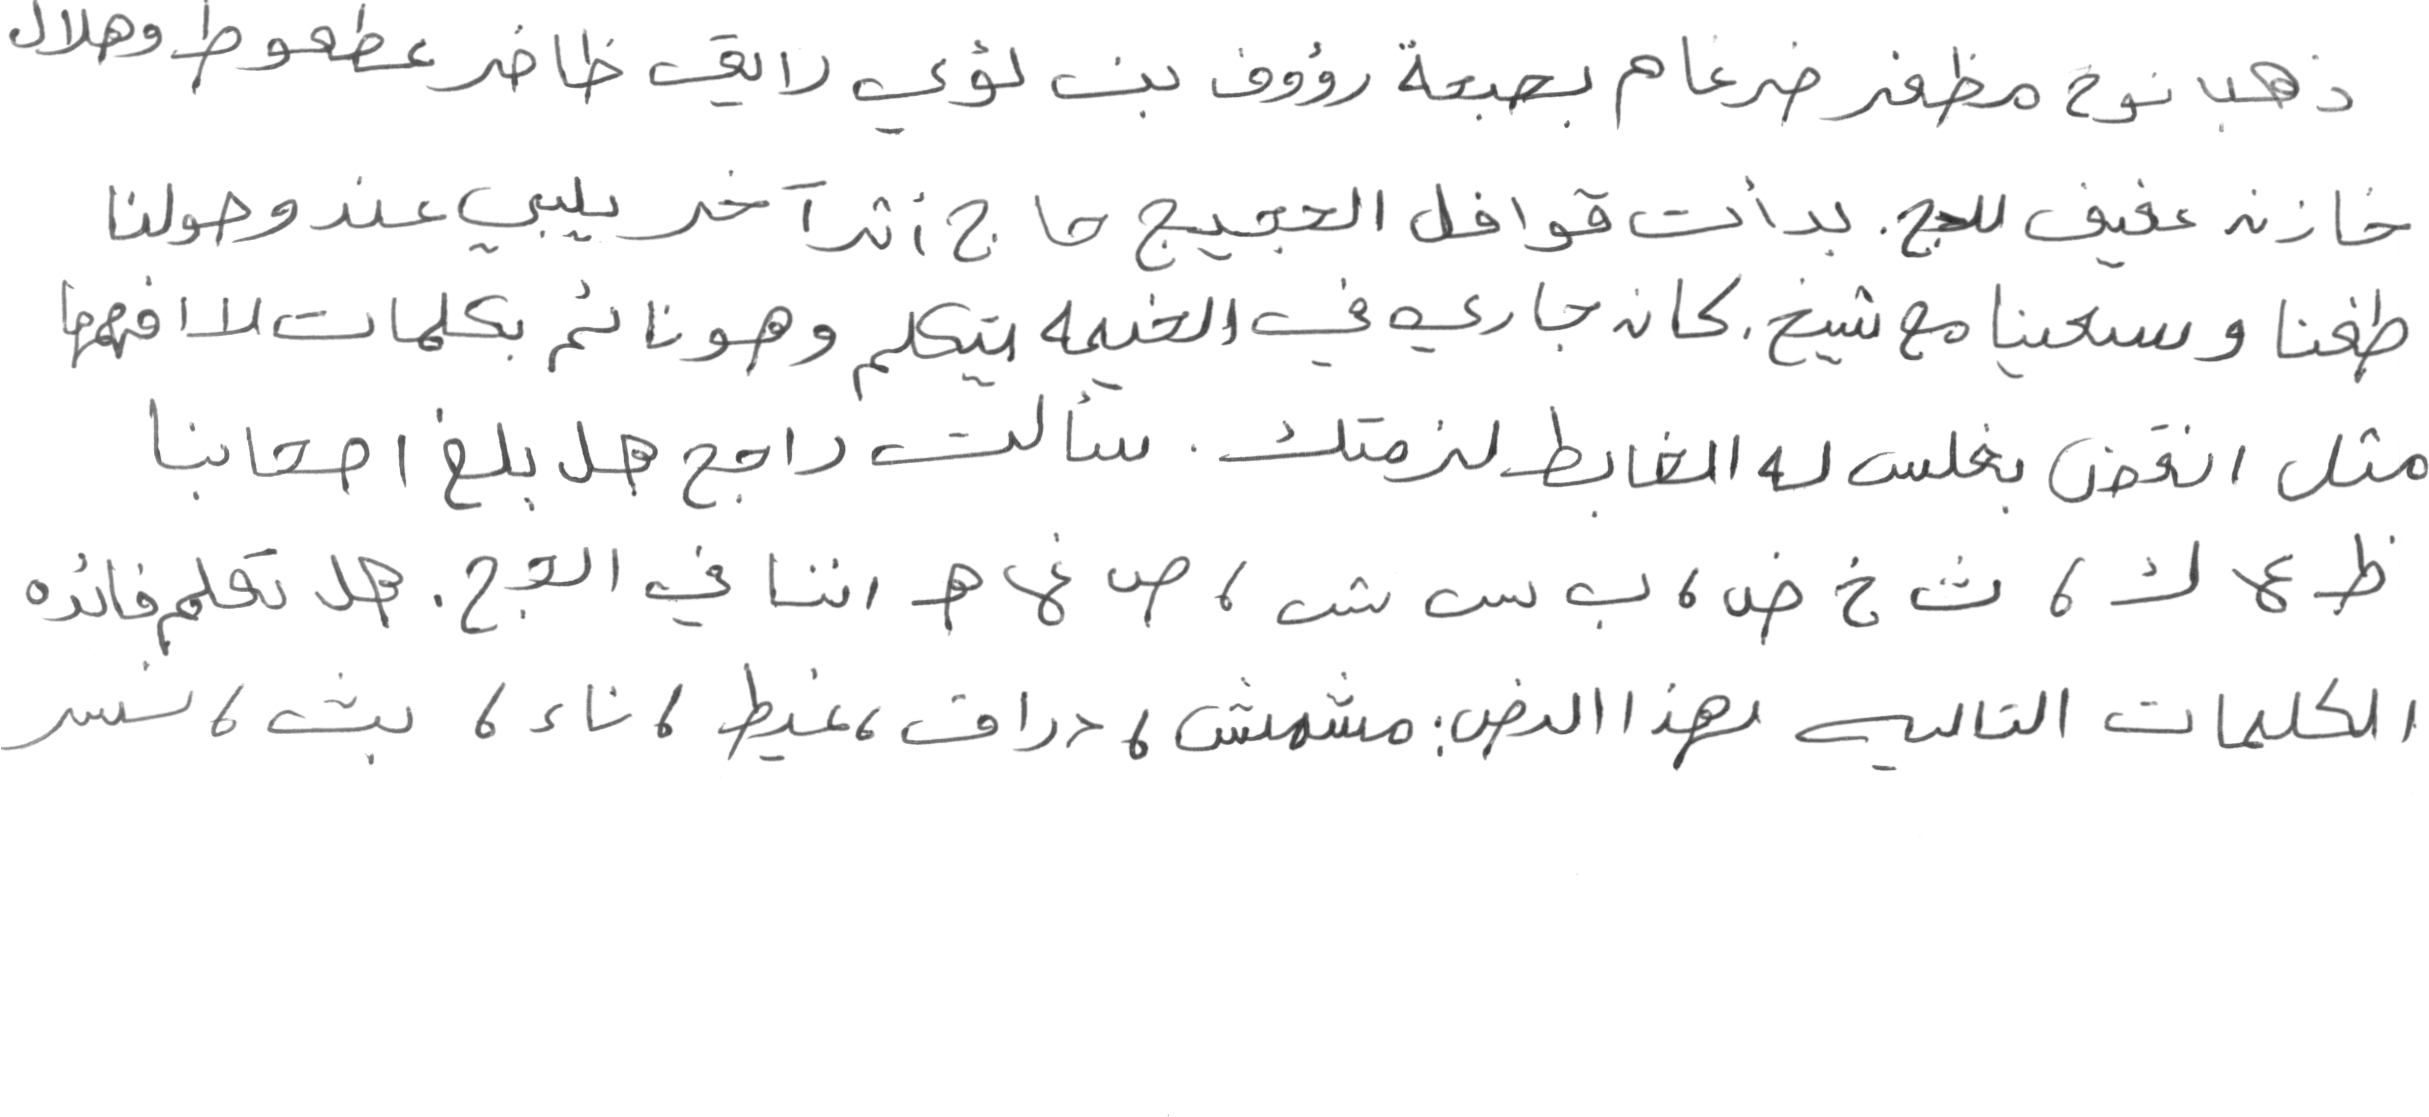 ذهب نوح مظفر ضرغام بصبعة رؤوف بن لؤي رايق ظافر عطعوط وهلال
خازن عفيف للحج. بدأت قوافل الحجيج حاج أثر آخر يلبي عند وصولنا
طفنا وسعينا مع شيخ. كان جاري في الخيمه يتكلم وهو نائم بكلمات لا افهمها
مثل انقض بغلس له الضابط لزمتك. سألت راجح هل بلغ اصحابنا
ظ ع ك، ث خ ض، ب س ش، ص غ هـ اننا في الحج. هل تعلم فائده
الكلمات التاليه لهذا النص: مشمش، دراق، غيظ، ناء، بث، نسر